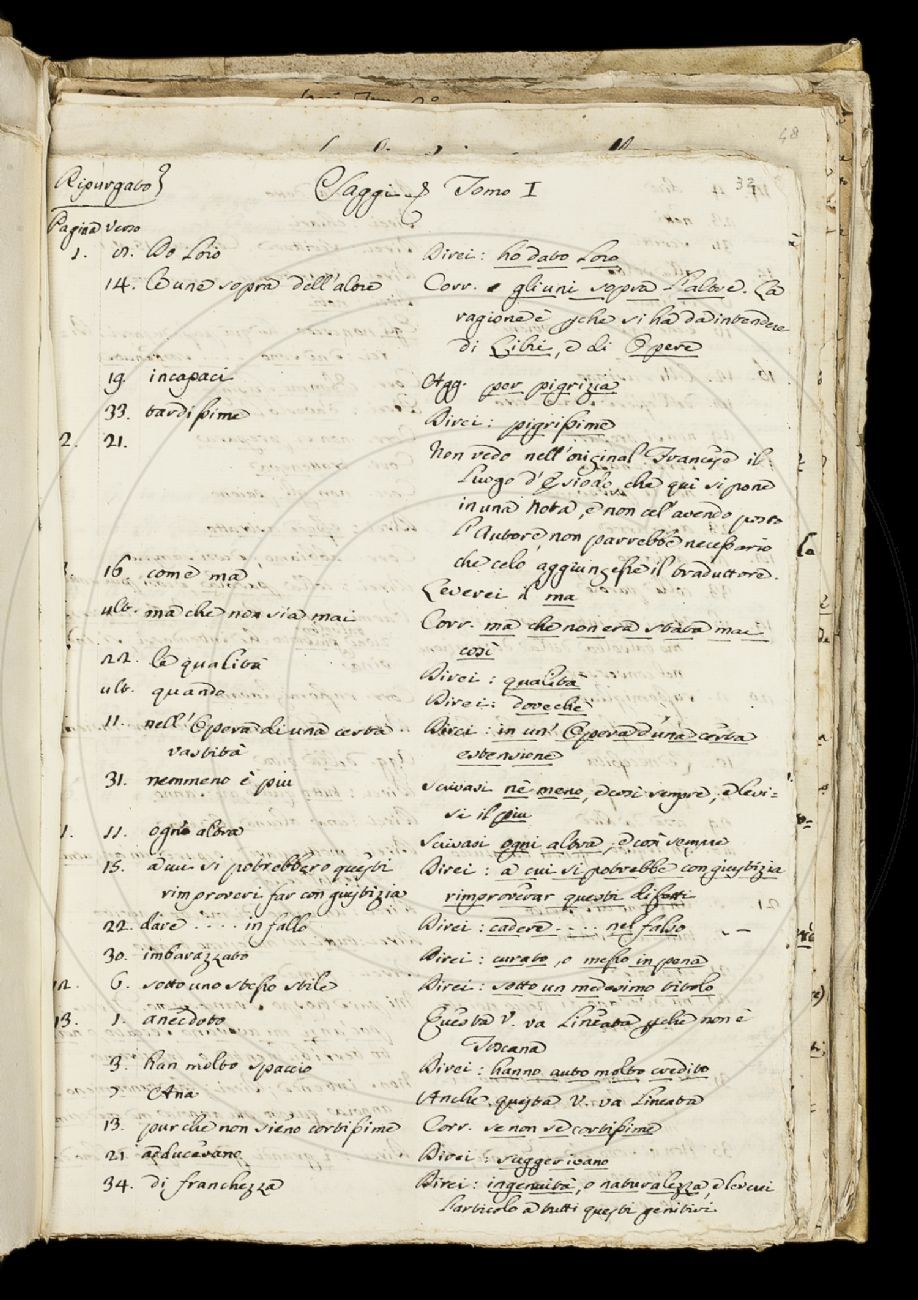 48
Ripurgato
Saggi & Tomo I
Pagina Verso
1. 5. Do Loro Direi: hò dato Loro
14. le une sopra dell'altre Corr. gli uni sopra l'altre. La
ragione è pche si ha da intendere
di Libri, e di Opere
19 incapaci Agg. per pigrizia
33. tardissime Direi: pigrissime
2. 21. Non vedo nell'original Francese il
Luogo d'Esiodo, che qui si pone
in una Nota, e non cel'avendo posto
l'Autore non parrebbe necessario
che celo aggiungesse il traduttore.
16 come ma Leverei il ma
ult. ma che non sia mai Corr. ma che non era stata mai
così
22. le qualità Direi: qualità
ult. quando Direi: doveche
11. nell'Opera di una certa Direi: in un'Opera d'una certa
vastità estensione
31. nemmeno è piu scrivasi nè meno, e così sempre, e levi=
si il piu
1. 11. ogn'altra Scrivasi ogni altra, e così sempre
15. à cui si potrebbero questi Direi: a cui si potrebbe con giustizia
rimproveri far con giustizia rimproverar questi difetti
22. dare .... in fallo Direi: cadere .... nel falso
30. imbarazzato Direi: curato, o messo in pena
12. 6. sotto uno stesso stile Direi: sotto un medesimo titolo
13. 1. anecdoto Questa V. va Lineata pche non è
Toscana
3. han molto spaccio Direi: hanno auto molto credito
7 Ana Anche questa V. va Lineata
13. purche non sieno cortissime Corr. se non se cortissime
21 adducevano Direi: suggerivano
34. di franchezza Direi: ingenuità, o naturalezza, e levei
l'articolo a tutti questi genitivi